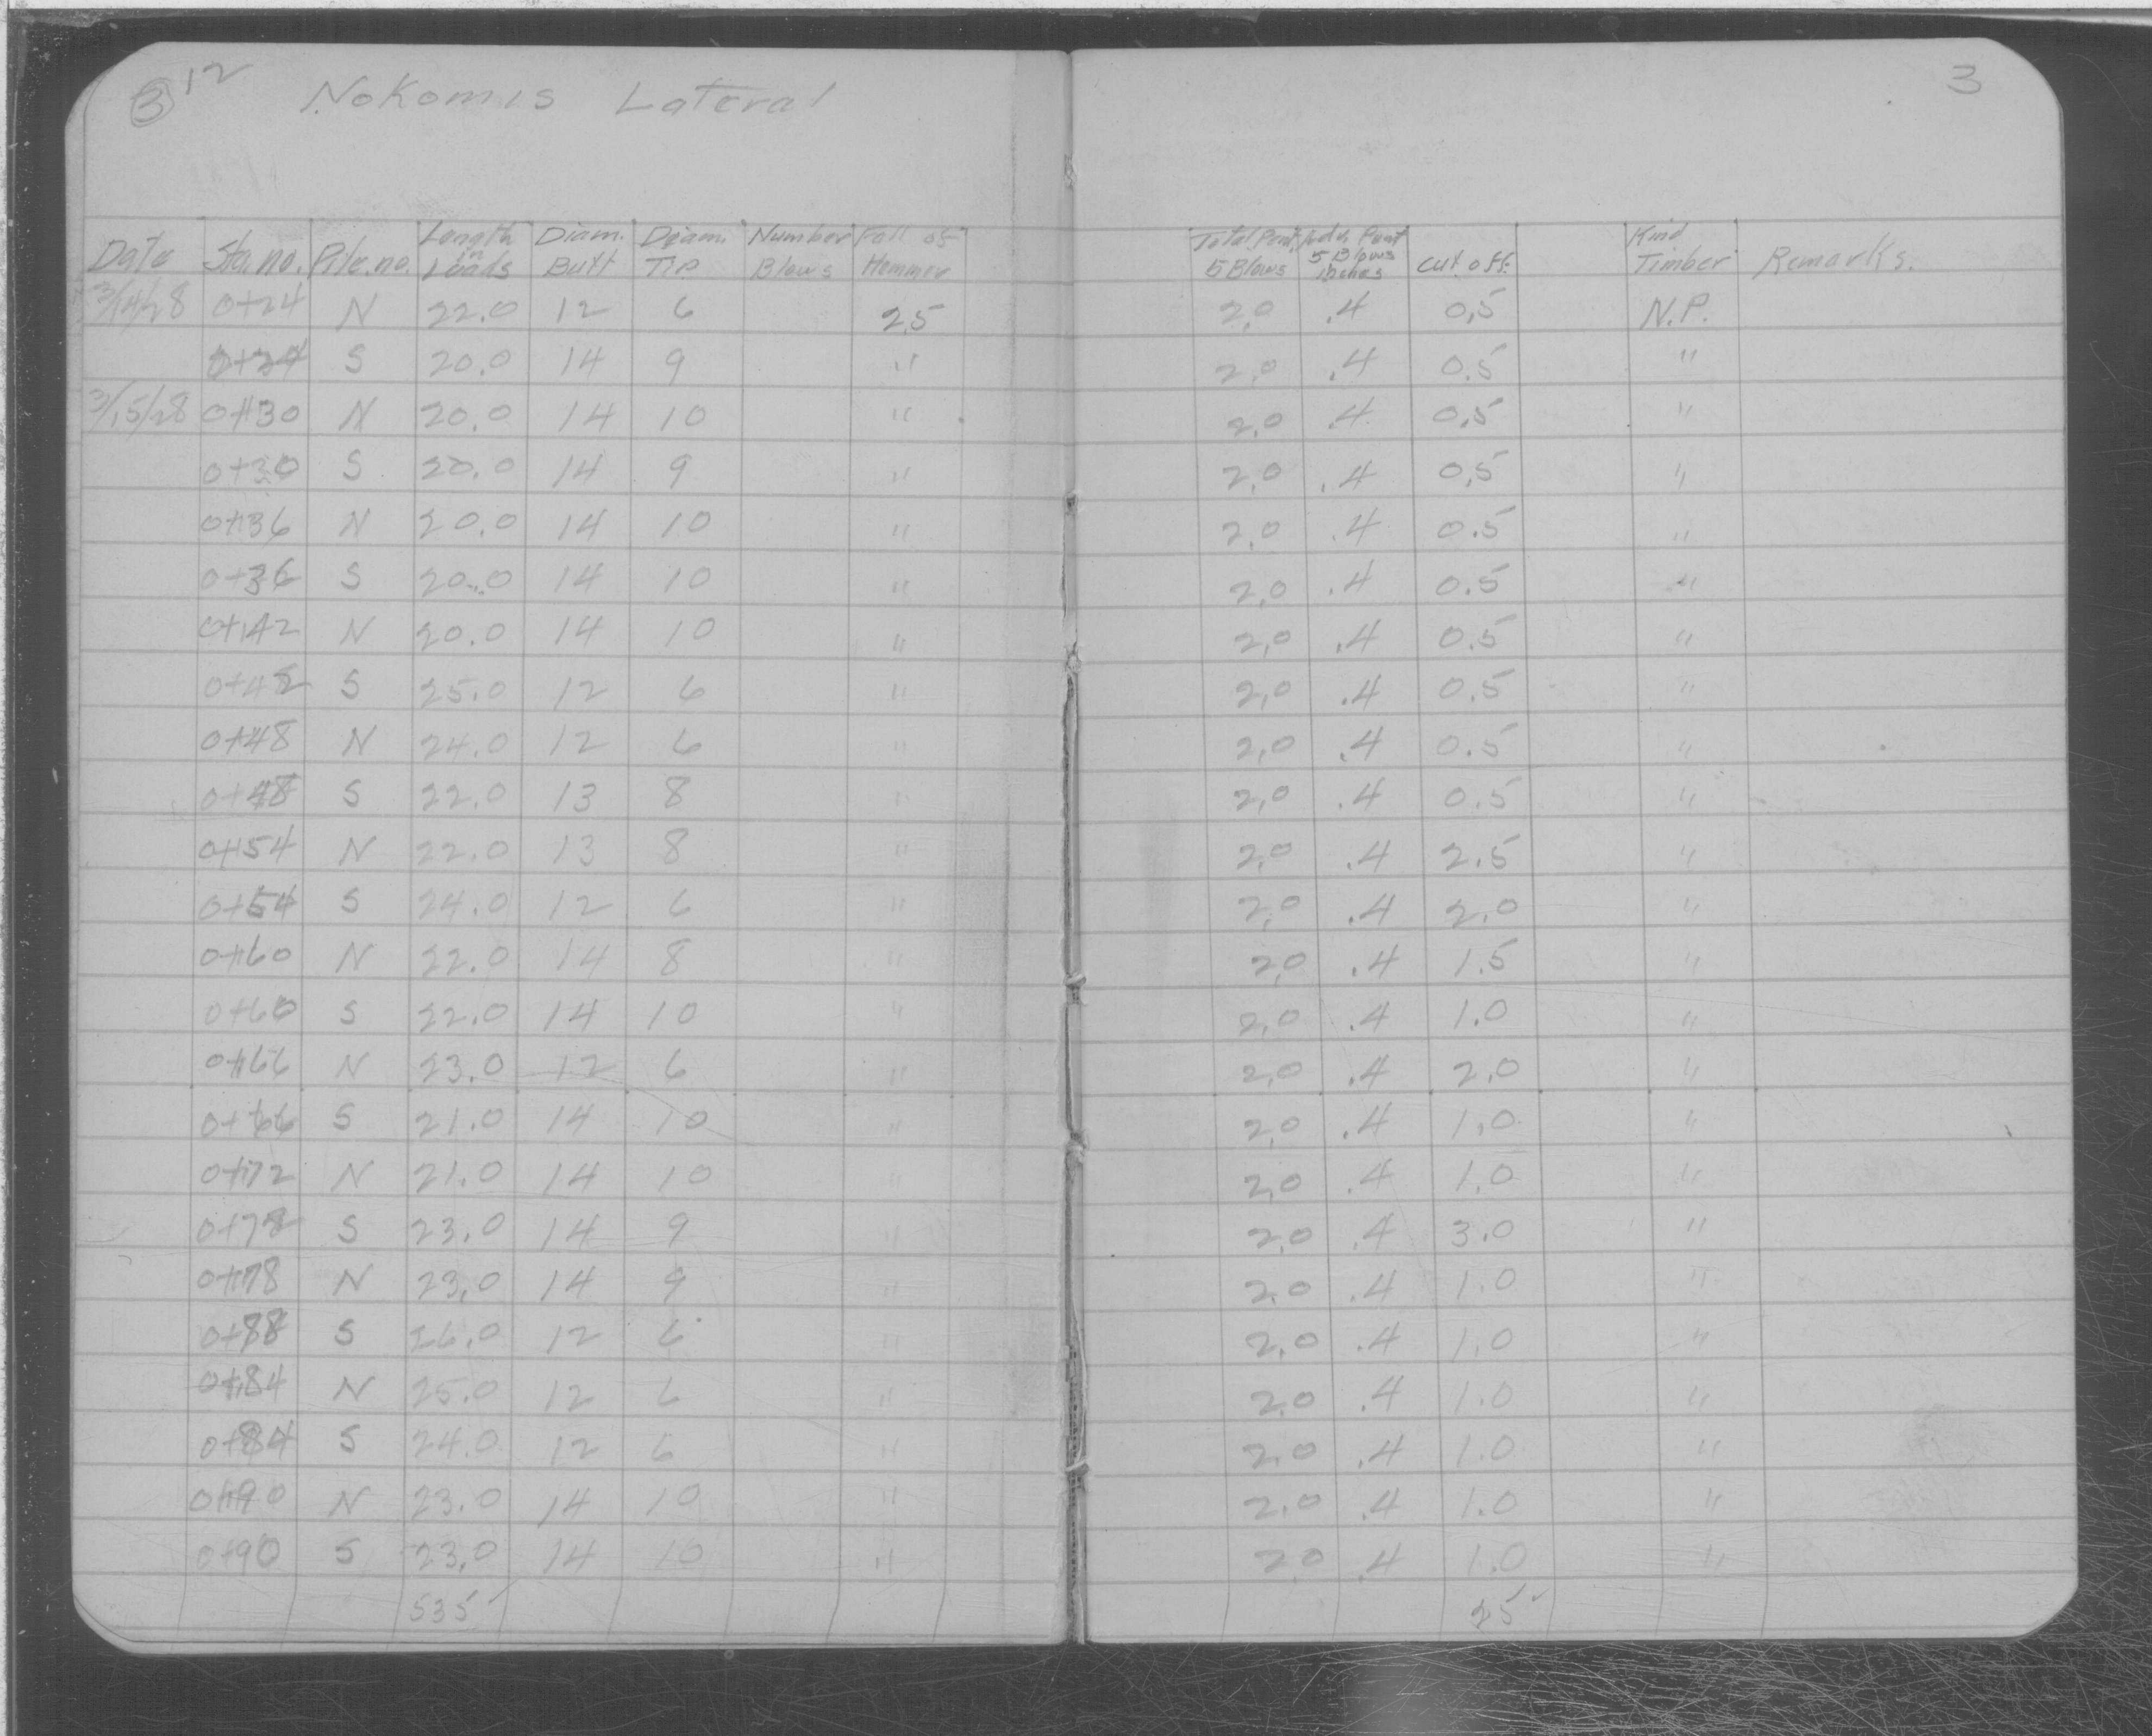 3 12 Nokomis Lateral 3
Date Sta. no. Pile. no. Length in Leads Diam. Butt Diam. Tip Number Blows Fall of Hammer Total Pent. 5 Blows 5 Blows Inches cut off. Kind Timber Remarks.
3/14/28 0+24 N 22.0 12 6 25 2.0 .4 0.5 N.P.
0+24 S 20.0 14 9 " 2.0 .4 0.5 "
3/15/28 0+30 N 20.0 14 10 " 2.0 .4 0.5 "
0+30 S 20.0 14 9 " 2.0 .4 0.5 "
0+36 N 20.0 14 10 " 2.0 .4 0.5 "
0+36 S 20.0 14 10 " 2.0 .4 0.5 "
0+42 N 20.0 14 10 " 2.0 .4 0.5 "
0+42 S 25.0 12 6 " 2.0 .4 0.5 "
0+48 N 24.0 12 6 " 2.0 .4 0.5 "
0+48 S 22.0 13 8 " 2.0 .4 0.5 "
0+54 N 22.0 13 8 " 2.0 .4 2.5 "
0+54 S 24.0 12 6 " 2.0 .4 2.0 "
0+60 N 22.0 14 8 " 2.0 .4 1.5 "
0+60 S 22.0 14 10 " 2.0 .4 1.0 "
0+66 N 23.0 12 6 " 2.0 .4 2.0 "
0+66 S 21.0 14 10 " 2.0 .4 1.0 "
0+72 N 21.0 14 10 " 2.0 .4 1.0 "
0+72 S 23.0 14 9 " 2.0 .4 3.0 "
0+78 N 23.0 14 9 " 2.0 .4 1.0 "
0+78 S 26.0 12 6 " 2.0 .4 1.0 "
0+84 N 25.0 12 6 " 2.0 .4 1.0 "
0+84 S 24.0 12 6 " 2.0 .4 1.0 "
0+90 N 23.0 14 10 " 2.0 .4 1.0 "
0+90 S 23.0 14 10 " 2.0 .4 1.0 "
535 25